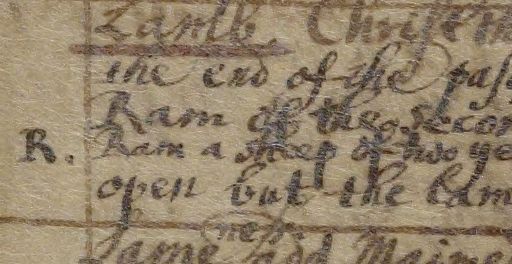 Lamb Christm
the end of the pass
Ram of the secon
R. Ram a sheep of two ye
open but the Lam
ness
Lame add Maine